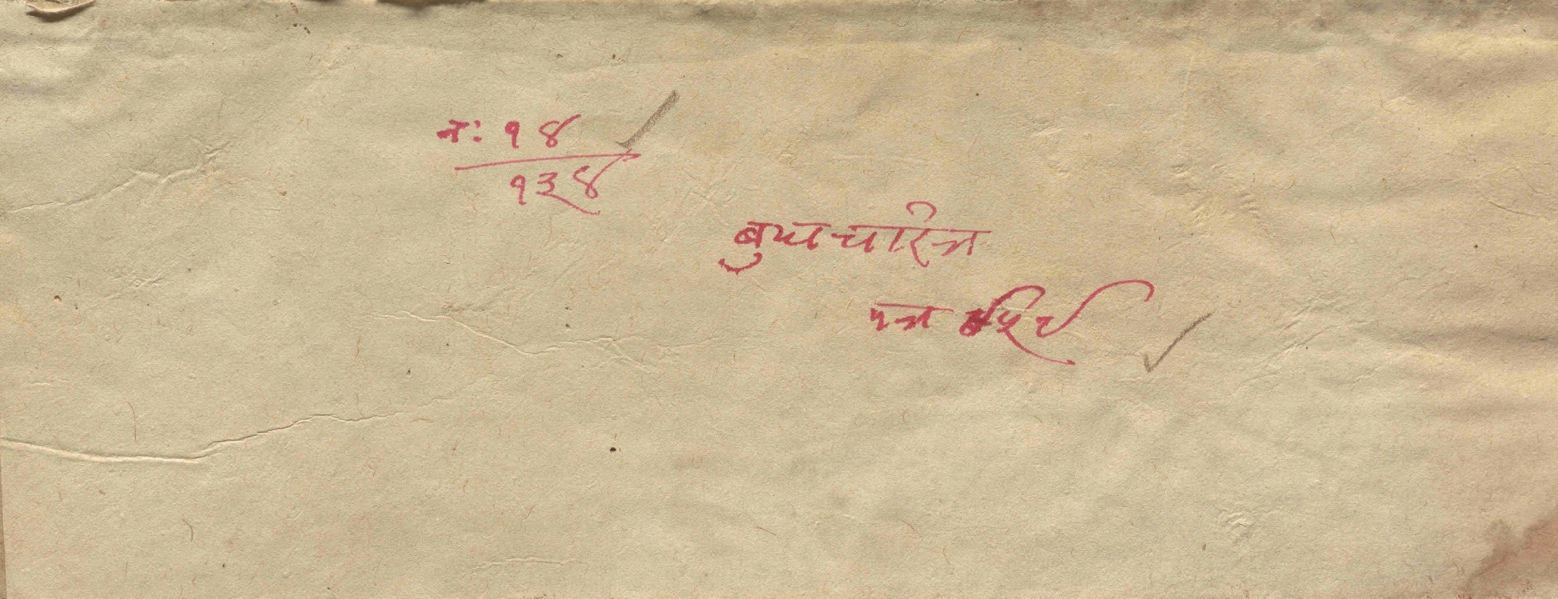 नः १४
१३४
बुधचरित्र
पत्र